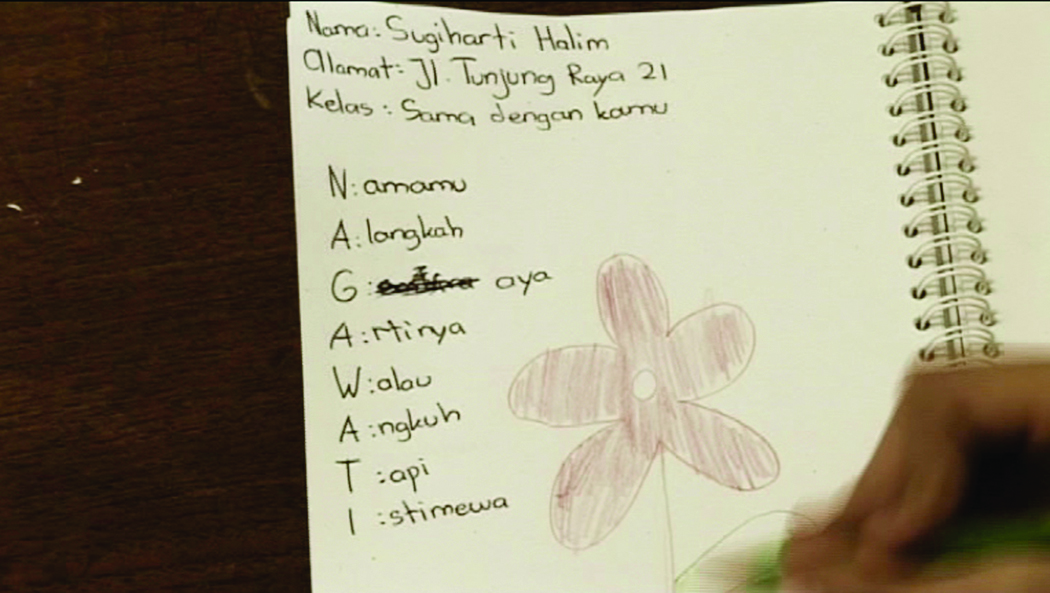 Nama: Sugiharti Halim
Alamat: Jl. Tunjung Raya 21
Kelas: Sama dengan kamu
N: amamu
A: langkah
G: aya
A: rtinya
W: alau
A: ngkuh
T: api
I: stimewa